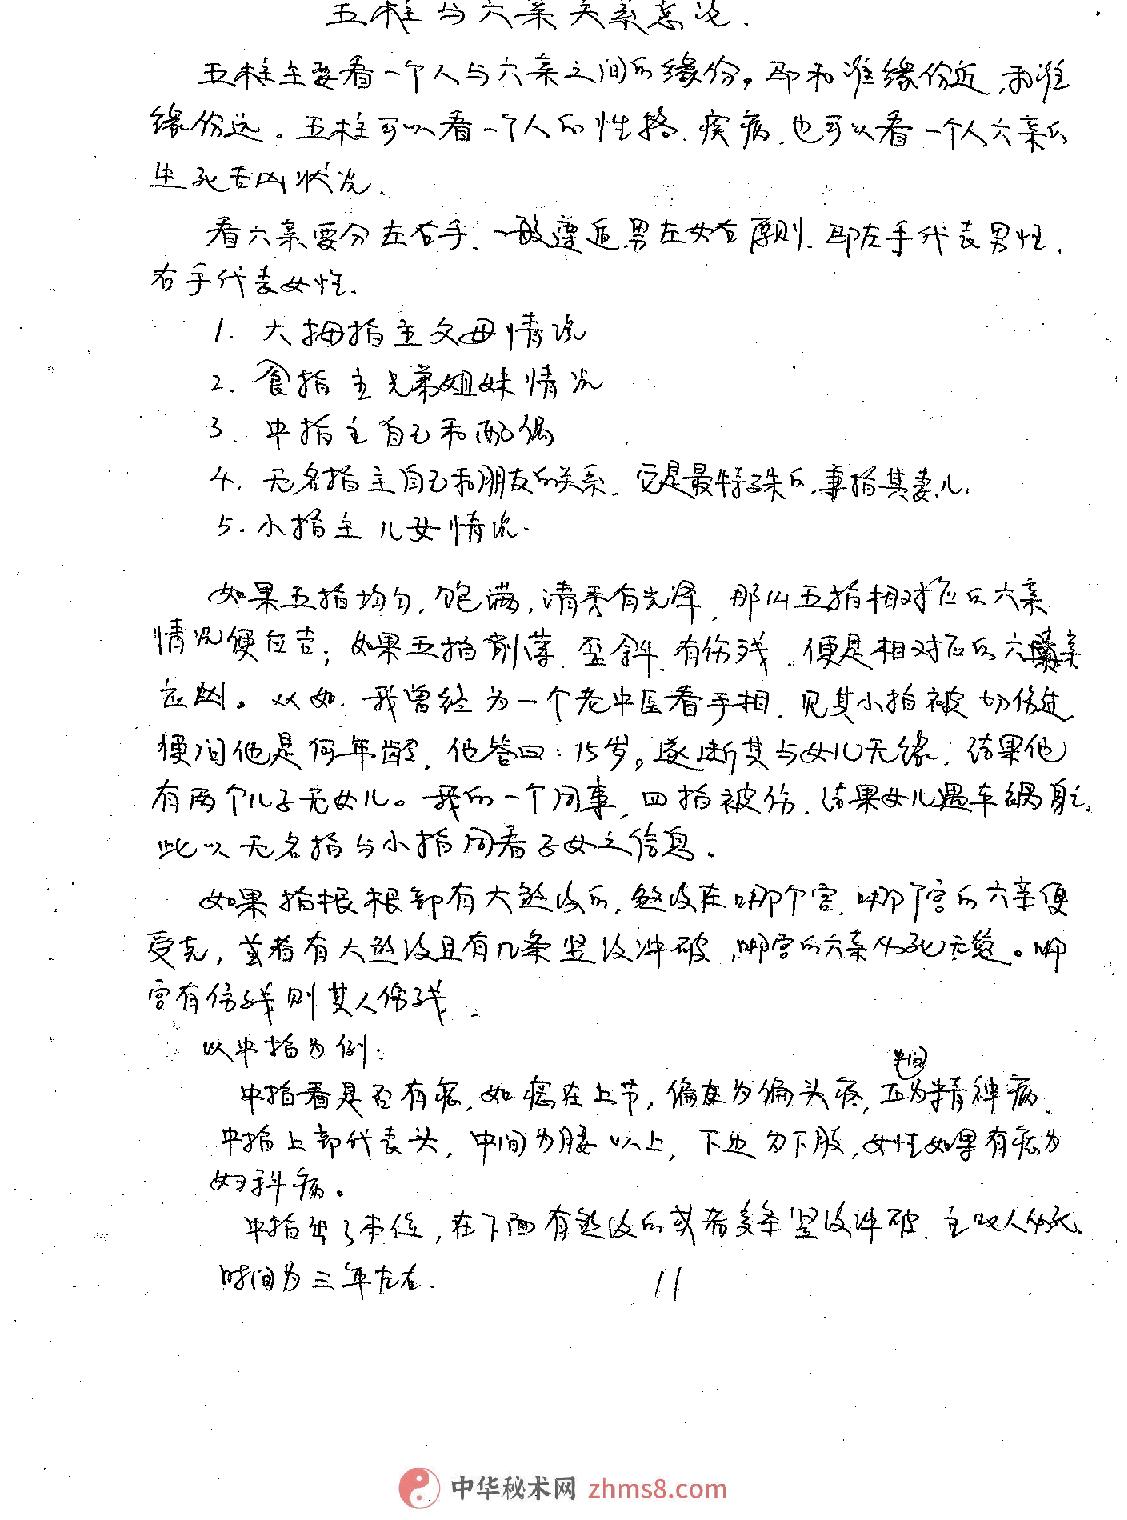 五柱与六亲关系总论.
五柱主要看一个人与六亲之间的缘份。即和谁缘份近,和谁
缘份远。五柱可以看一个人的性格、疾病、也可以看一个人六亲的
生死吉凶状况.
看六亲要分左右手、一般遵近男左女右原则.即左手代表男性.
右手代表女性.
1. 大拇指主父母情况
2. 食指主兄弟姐妹情况
3. 中指主自己和配偶
4. 无名指主自己和朋友的关系.它是最特殊的.事指其妻儿.
5. 小指主儿女情况.
如果五指均匀.饱满,清秀有光泽,那么五指相对应的六亲
情况便应吉;如果五指削薄.歪斜.有伤残.便是相对应的六亲
应凶。比如.我曾经为一个老中医看手相.见其小指被切伤过
便问他是何年龄.他答曰:15岁。遂断其与女儿无缘.结果他
有两个儿子无女儿。我的一个同事,四指被伤.结果女儿遇车祸身亡.
此以无名指与小指同看子女之信息.
如果指根根部有大煞纹的.煞纹在哪个宫.哪个宫的六亲便
受克,若有大煞纹且有几条竖纹冲破,哪宫的六亲必死无疑。哪
宫有伤残则其人伤残.
以中指为例:
中指看是否有痣.如痣在上节,偏左为偏头疼,正中间为精神病.
中指上部代表头,中间为腰以上,下边为下肢,女性如果有痣为
妇科病。
中指出了本位,在下面有煞纹的或者多条竖纹冲破.主此人必死.
时间为三年左右.
11
中华秘术网 zhms8.com